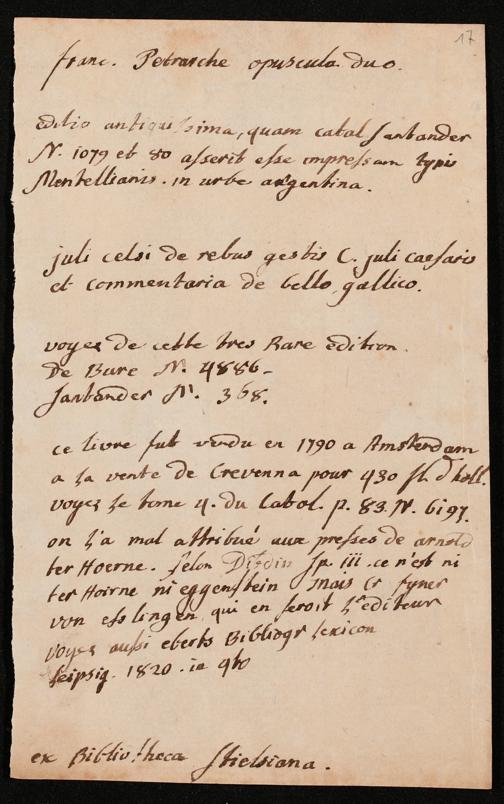 17
franc. Petrarche opuscula duo.
editio antiquissima, quam catal Santander
N. 1079 et 80 asserit esse impressam typis
Mentellianis. in urbe argentina.
juli celsi de rebus gestis C. juli caesaris
et commentaria de bello gallico.
voyez de cette tres Rare edition.
De Bure N. 4886-
Santander N. 368.
ce livre fut vendu en 1790 a Amsterdam
a la vente de Crevenna pour 430 fl. d holl.
voyez le tome 4. du Catol. p. 83. N. 6197.
on l'a mal attribué aux presses de arnold
ter Hoerne. selon Dibdin Sp. iii. ce n'est ni
ter Hoirne ni eggenstein mais Cr fyner
von esslingen qui en seroit l'editeur
voyez aussi eberts Bibliogr lexicon
Leipsig. 1820. in 4to
ex Bibliotheca Stielsiana.